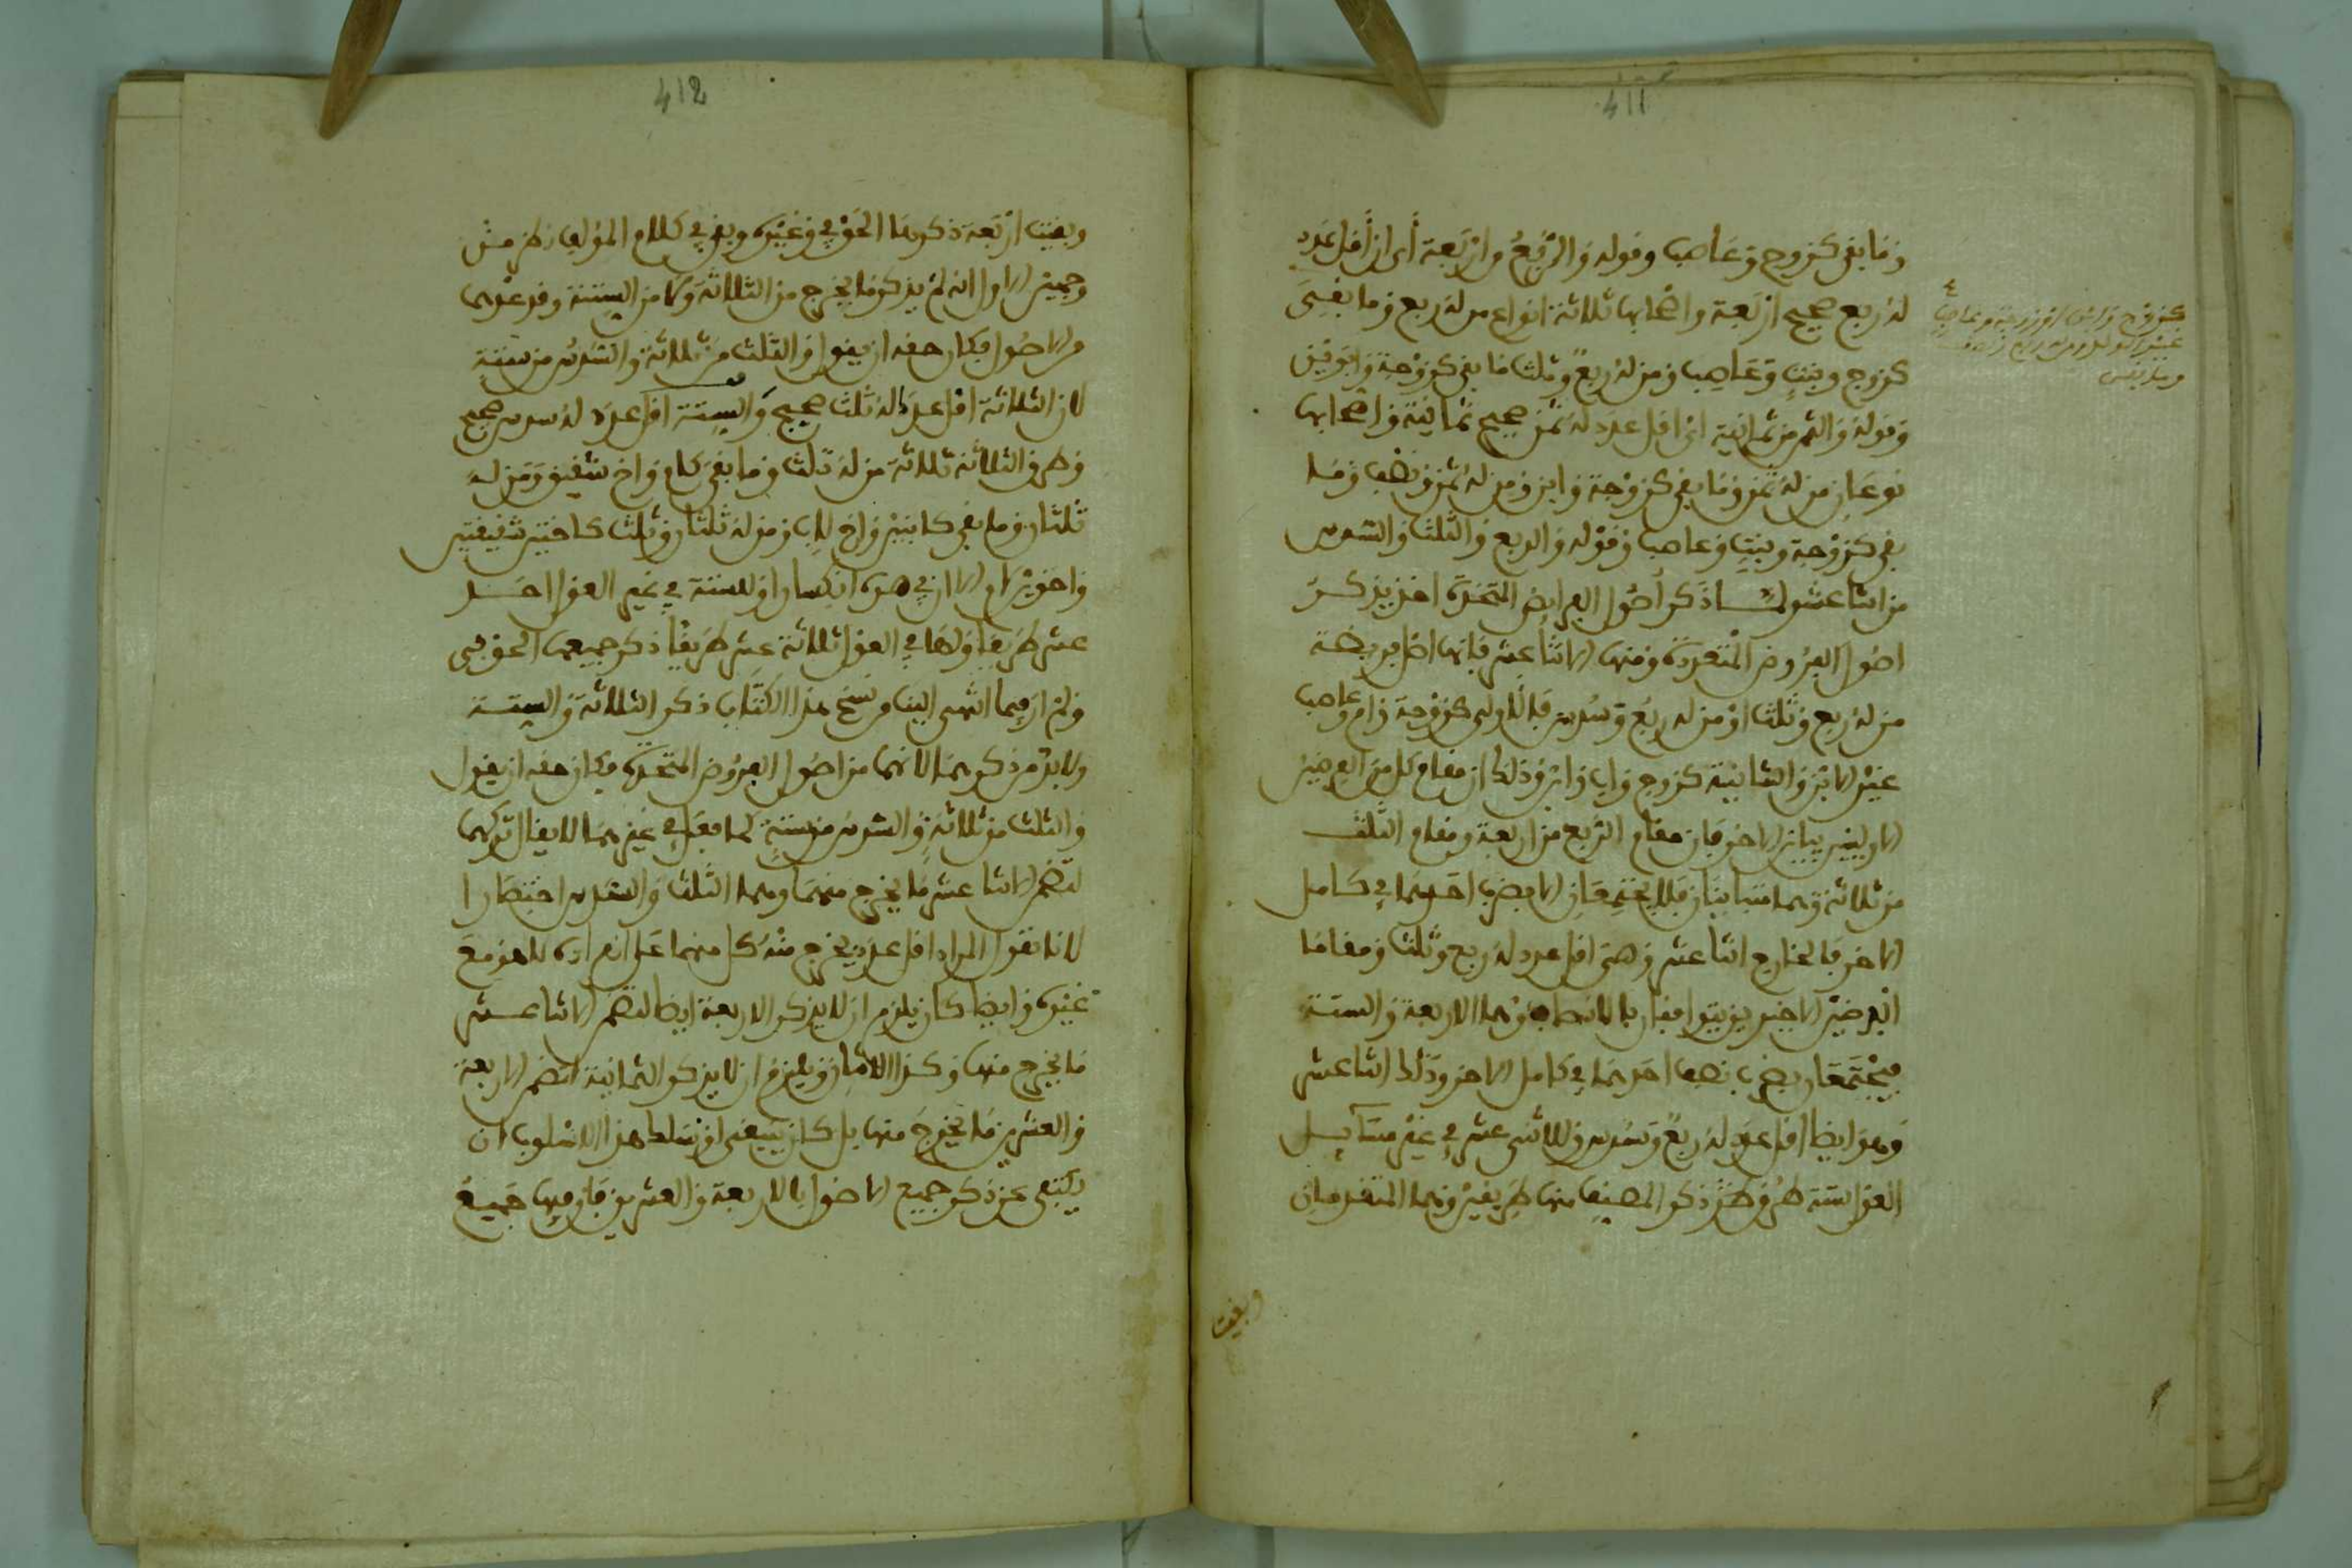 411
وما بقي كزوج وعاصب وقوله والربع من اربعة أي ان أقل عدد
له ربع صحيح اربعة واصحابها ثلاثة انواع من له ربع وما بقي
كزوج وبنت وعاصب ومن له ربع وثلث ما بقي كزوجة وابوين
وقوله والثمن من ثمانية اي اقل عدد له ثمن صحيح ثمانية واصحابها
نوعان من له ثمن وما بقي كزوجة وابن ومن له ثمن ونصف وما
بقي كزوجة وبنت وعاصب وقوله والربع والثلث والسدس
من اثنا عشر لما ذكر أصول الفرايض المتحدة اخذ يذكر
اصول الفروض المتعددة ومنها الاثنا عشر فانها اصل فريضة
من له ربع وثلث او من له ربع وسدس فالاولى كزوجة وام وعاصب
غير الابن والثانية كزوج واب وابن وذلك ان مقام كل من الفرضين
الاولين يباين الاخر فان مقام الربع من اربعة ومقام الثلث
من ثلاثة وهما متباينان فلا يجتمعان الا بضرب احدهما في كامل
الاخر فالخارج اثنا عشر وهي اقل عدد له ربع وثلث ومقاما
الفرضين الاخيرين يتوافقان بالانصاف وهما الاربعة والستة
فيجتمعان بضرب نصف احدهما في كامل الاخر وذلك اثنا عشر
وهو ايضا اقل عدد له ربع وسدس وللاثني عشر في غير مسايل
العول ستة طرق ذكر المصنف منها طريقين وهما المتقدمان
كزوج وابن او زوجة وعاصب
وبقيت
412
وبقيت اربعة ذكرها الحوفي وغيره وبقي في كلام المؤلف نظر من
وجهين الاول انه لم يذكر ما يخرج من الثلاثة ولا من الستة وقد عدهما
من الاصول فكان حقه ان يقول والثلث من ثلاثة والسدس من ستة
لان الثلاثة اقل عدد له ثلث صحيح والستة اقل عدد له سدس صحيح
وطرق الثلاثة ثلاثة من له ثلث وما بقي كام واخ شقيق ومن له
ثلثان وما بقي كابنتين واخ لاب ومن له ثلثان وثلث كاختين شقيقتين
واخوين لام الا ان في هذه انكسار وللستة في غير العول احد
عشر طريقا ولها في العول ثلاثة عشر طريقا ذكر جميعها الحوفي
ولم ار فيما انتهى الينا من نسخ هذا الكتاب ذكر الثلاثة والستة
ولا بد من ذكرهما لانهما من اصول الفروض المتحدة فكان حقه ان يقول
والثلث من ثلاثة والسدس من ستة كما فعل في غيرهما لا يقال تركهما
لتضمن الاثنا عشر ما يخرج منهما وهما الثلث والسدس اختصارا
لانا نقول المراد اقل عدد يخرج منه كل منهما على انفراده لا هو مع
غيره وايضا كان يلزم ان لا يذكر الاربعة ايضا لتضمن الاثنا عشر
ما يخرج منها وكذا الاثنان ويلزم ان لا يذكر الثمانية لتضمن الاربعة
والعشرين ما يخرج منها بل كان ينبغي لو سلك هذا الاسلوب ان
يكتفي عن ذكر جميع الاصول بالاربعة والعشرين فان فيها جميع